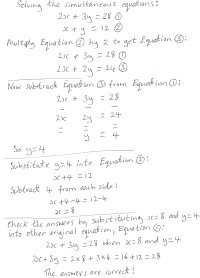 Solving the simultaneous equations:
2x + 3y = 28 ①
x + y = 12 ②
Multiply Equation ② by 2 to get Equation ③:
2x + 3y = 28 ①
2x + 2y = 24 ③
Now subtract Equation ③ from Equation ①:
2x + 3y = 28
− − −
2x 2y = 24
= = =
y = 4
So y=4
Substitute y=4 into Equation ②:
x+4 =12
Subtract 4 from each side:
x+4-4=12-4
x=8
Check the answers by substituting x=8 and y=4
into other original equation, Equation ①:
2x + 3y = 28 when x=8 and y=4
2x+3y = 2×8 + 3×4 = 16+12 = 28
The answers are correct!